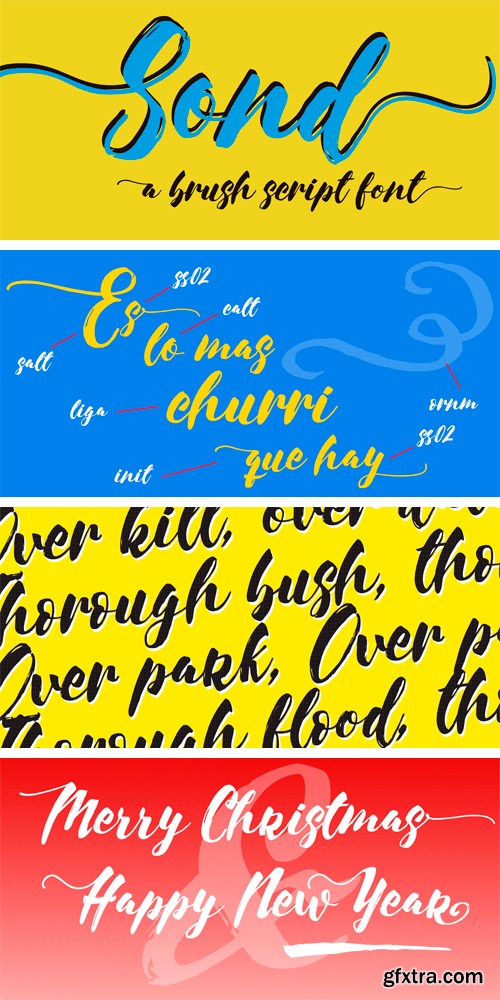 Sond
a brush script font
Es
ss02
salt
calt
lo mas
liga
churri
ornm
init
que hay
ss02
Over kill, over
Thorough bush, tho
Over park, Over p
Thorough flood, th
&
Merry Christmas
Happy New Year
gfxtra.com